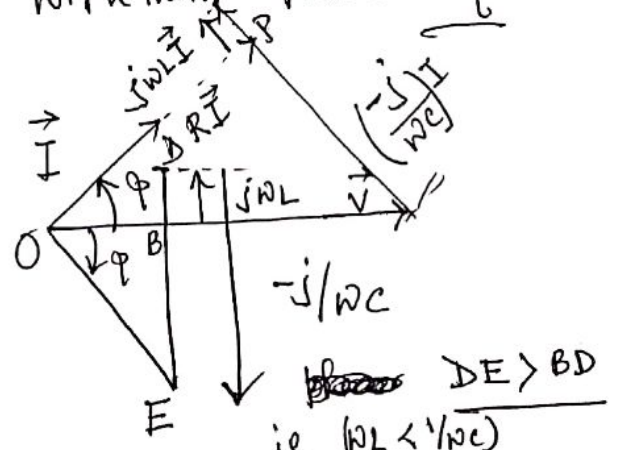 P
jωL I⃗
R I⃗
(-j/ωC) I
I⃗
D
φ
jωL
V⃗
O
φ
B
-j/ωC
E
DE > BD
ie (ωL < 1/ωC)